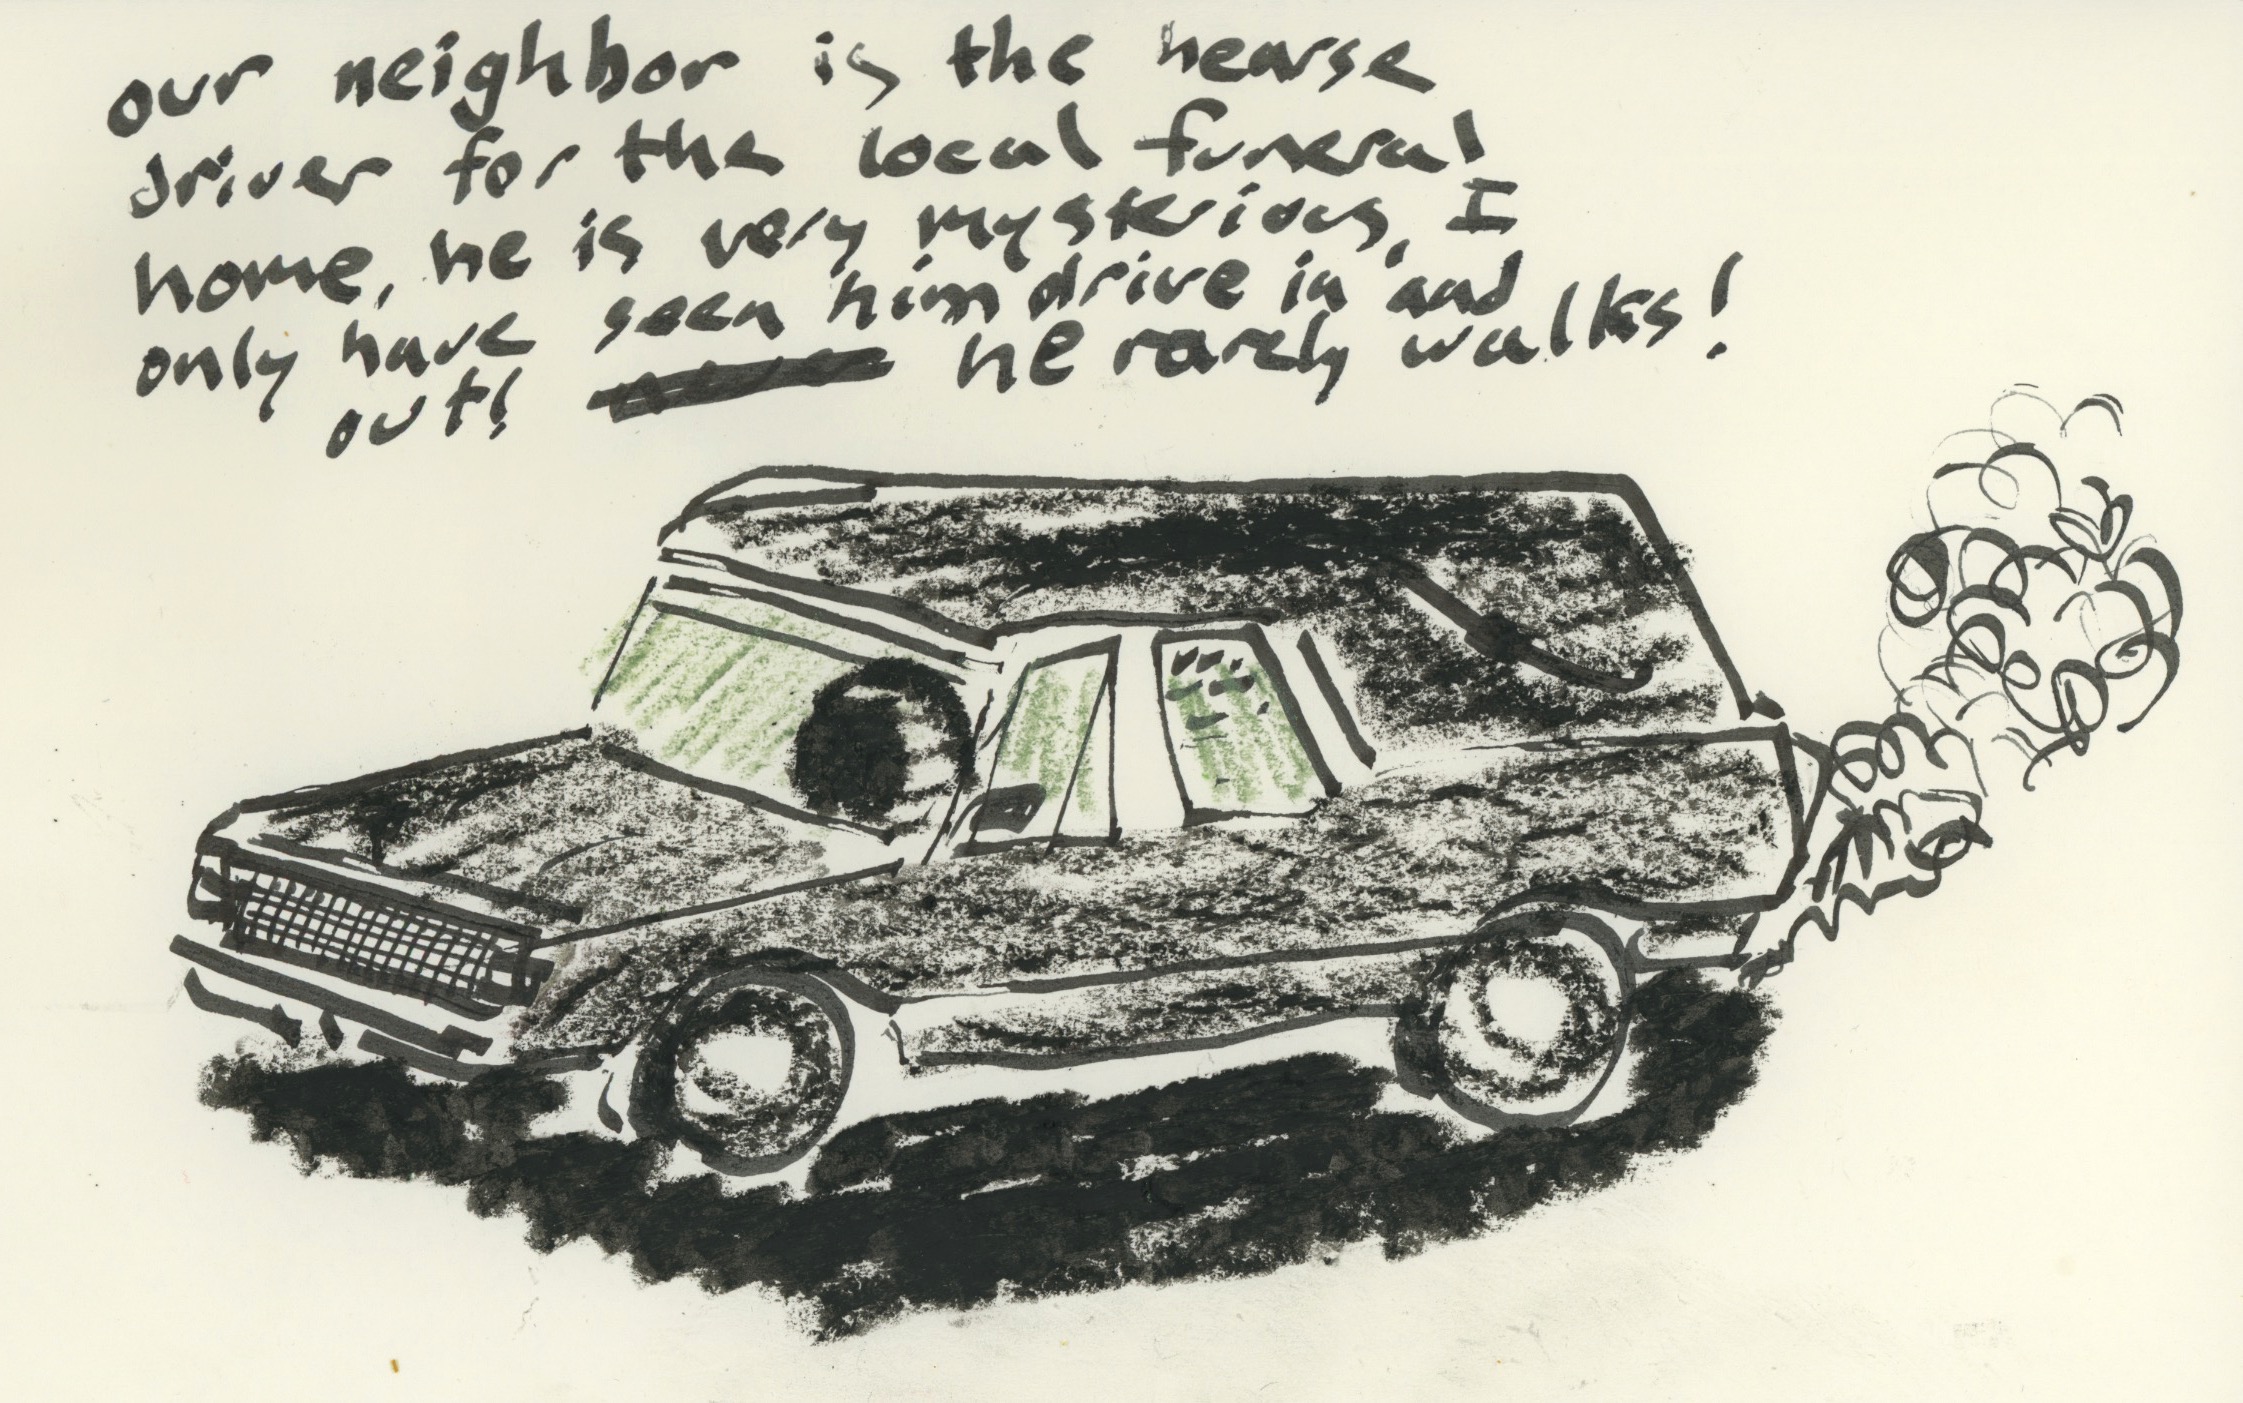 our neighbor is the hearse
driver for the local funeral
home, he is very mysterious, I
only have seen him drive in and
out! he rarely walks!